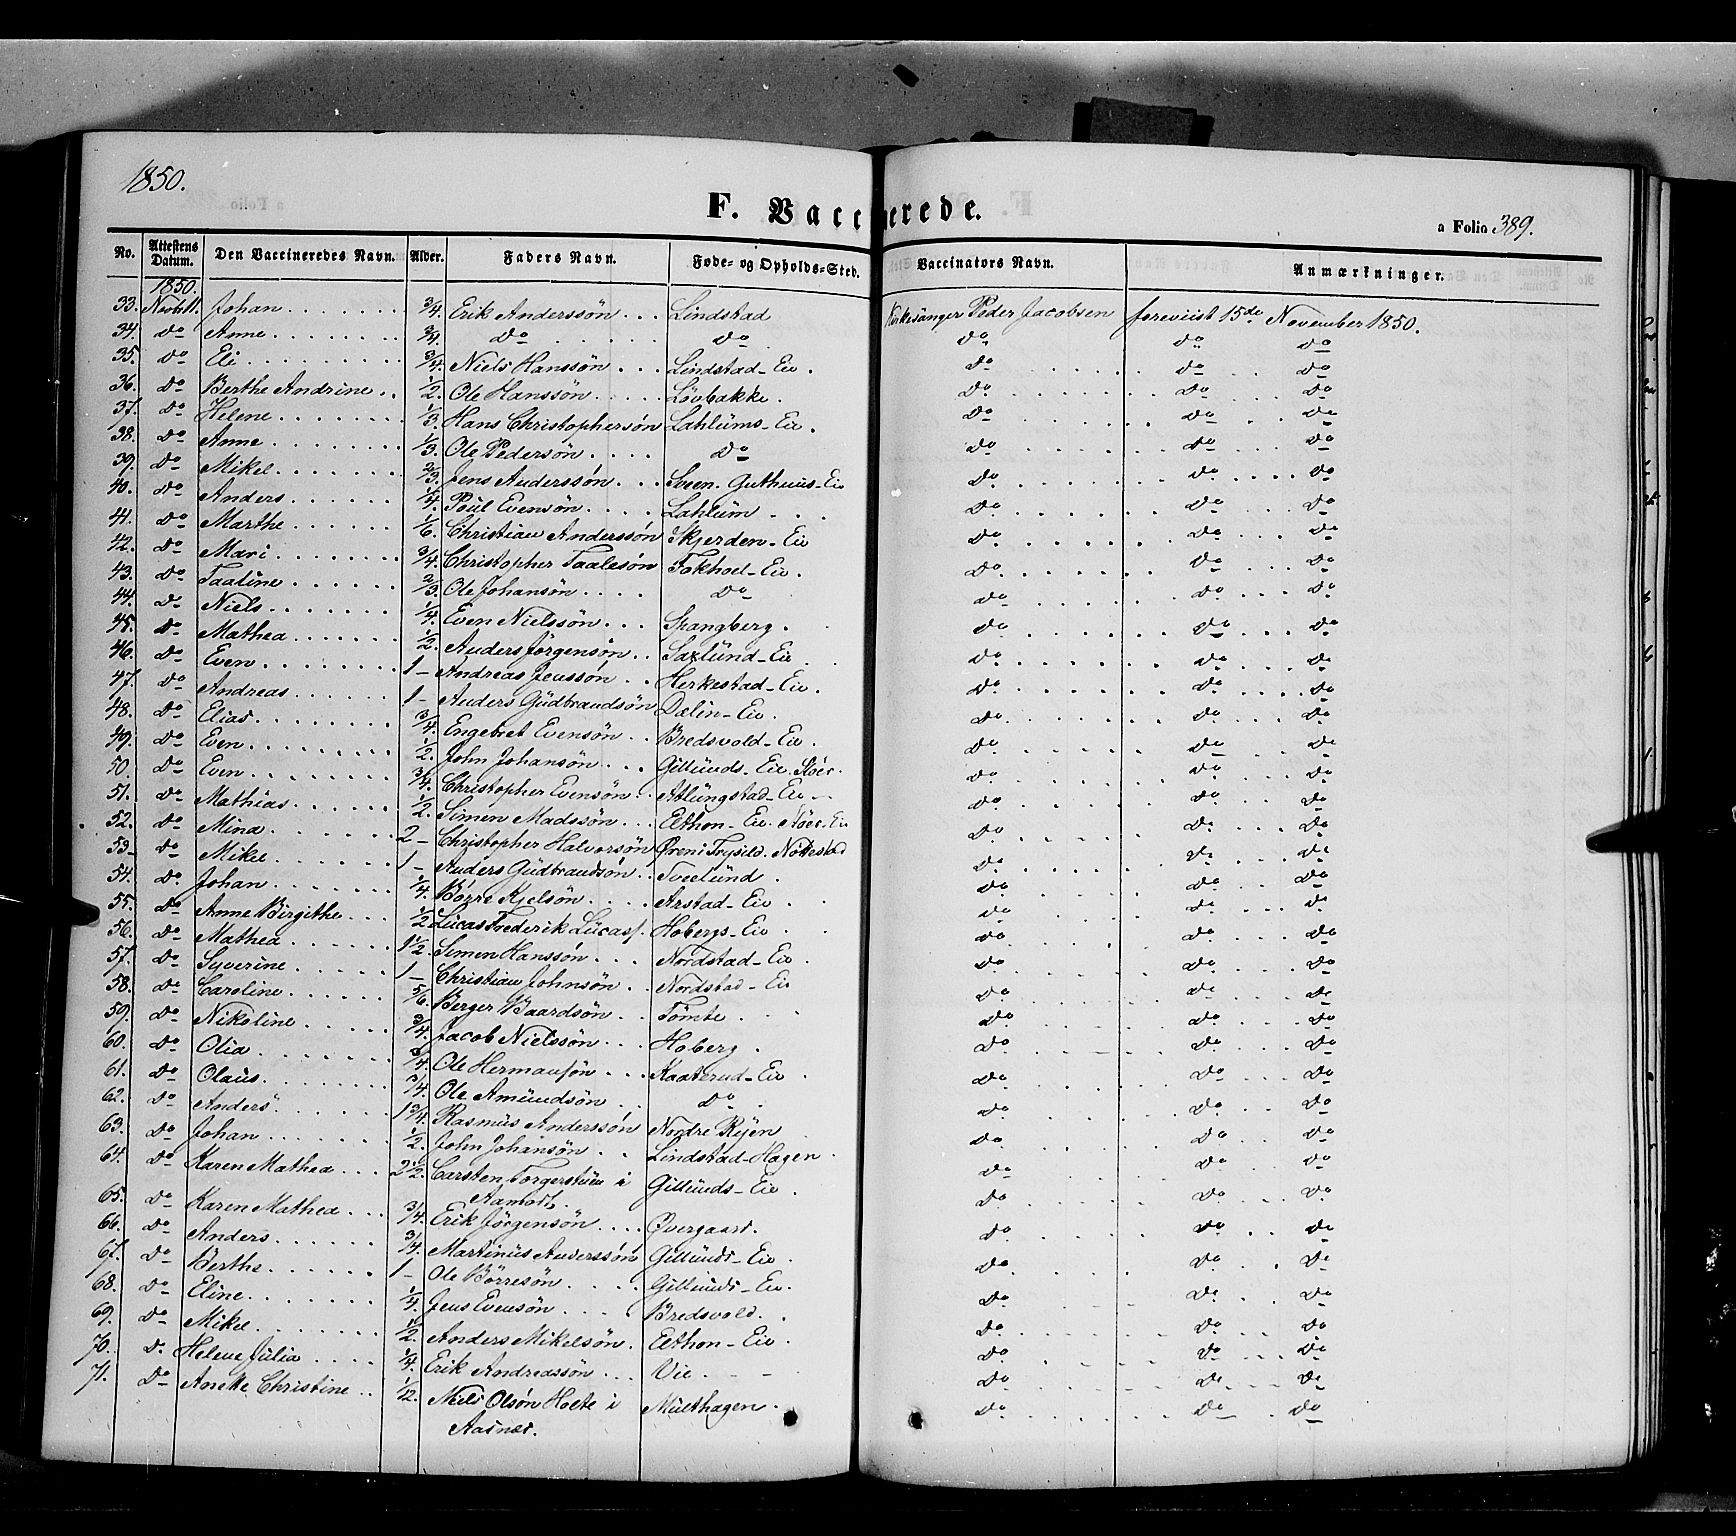 1850.
F. Vaccinerede.
a Folio 389.
No. Attestens Datum. Den Vaccineredes Navn. Alder. Faders Navn. Føde- og Opholds-Sted. Vaccinators Navn. Anmærkninger.
1850.
33. Novbr 11. Johan 3/4. Erik Anderssön Lindstad Kirkesanger Peder Jacobsen foreviist 15de November 1850.
34. do Anne 3/4. do do do do do
35. do Eli 3/4. Niels Hanssön Lindstad-Eie. do do do
36. do Berthe Andrine 1/2. Ole Hanssön Lövbakke. do do do
37. do Helene 1/3. Hans Christophersön Lahlums-Eie. do do do
38. do Anne 1/3. Ole Pedersön do do do do
39. do Mikel 2/3. Jens Anderssön Sveen. Guthuus-Eie do do do
40. do Anders 1/4. Poul Evensön Lahlum do do do
41. do Marthe 1/6. Christian Anderssön Skjerden-Eie do do do
42. do Mari 3/4. Christopher Taalesön Tokhoel-Eie. do do do
43. do Taaline 2/3. Ole Johansön do do do do
44. do Niels 1/4. Even Nielssön Spangberg. do do do
45. do Mathea 1/2. Anders Jörgensön Saxlund-Eie do do do
46. do Even 1- Andreas Jenssön Herkestad-Eie. do do do
47. do Andreas 1- Anders Gudbrandsön Dælin-Eie. do do do
48. do Elias 3/4. Engebret Evensön Bredsvold-Eie. do do do
49. do Even 1/2. John Johansön Gillunds-Eie. Stöer. do do do
50. do Even 3/4. Christopher Evensön Atlungstad-Eie do do do
51. do Mathias 1/2. Simen Madssön Elthon-Eie. Stöer-Eie do do do
52. do Mina 2- Christopher Halvorsön Öreni Trysild. Nöttestad do do do
53. do Mikel 1- Anders Gudbrandsön Tveelund. do do do
54. do Johan 1/4. Börre Kjelsön Arstad-Eie. do do do
55. do Anne Birgithe 1/2 Lucas Frederik Lucass. Hobergs-Eie. do do do
56. do Mathea 1 1/2. Simen Hanssön Nordstad-Eie. do do do
57. do Syverine 1- Christian Johnsön Nordstad-Eie do do do
58. do Caroline 5/6. Berger Baardsön Tomte do do do
59. do Nikoline 3/4. Jacob Nielssön Hoberg. do do do
60. do Olia 3/4. Ole Hermansön Kaaterud-Eie. do do do
61. do Olaus. 3/4. Ole Amundsön do do do do
62. do Anders 1 3/4. Rasmus Anderssön Nordre Ryen do do do
63. do Johan 1/2. John Johansön Lindstad-Hagen. do do do
64. do Karen Mathea 2 1/2. Carsten Torgerstuen i Aamodt. Gillunds-Eie. do do do
65. do Karen Mathea 3/4. Erik Jörgensön Övergaard. do do do
66. do Anders 3/4. Martinus Anderssön Gillunds-Eie. do do do
67. do Berthe 1- Ole Börresön Gillunds-Eie. do do do
68. do Eline 1/4. Jens Evensön Bredsvold. do do do
69. do Mikel 1/2. Anders Mikelsön. Elthon-Eie. do do do
70. do Helene Julia 1/4. Erik Andreassön Vie. do do do
71. do Aneke Christine 1/12. Niels Olsön Holte i Aasnæs. Multhagen. do do do